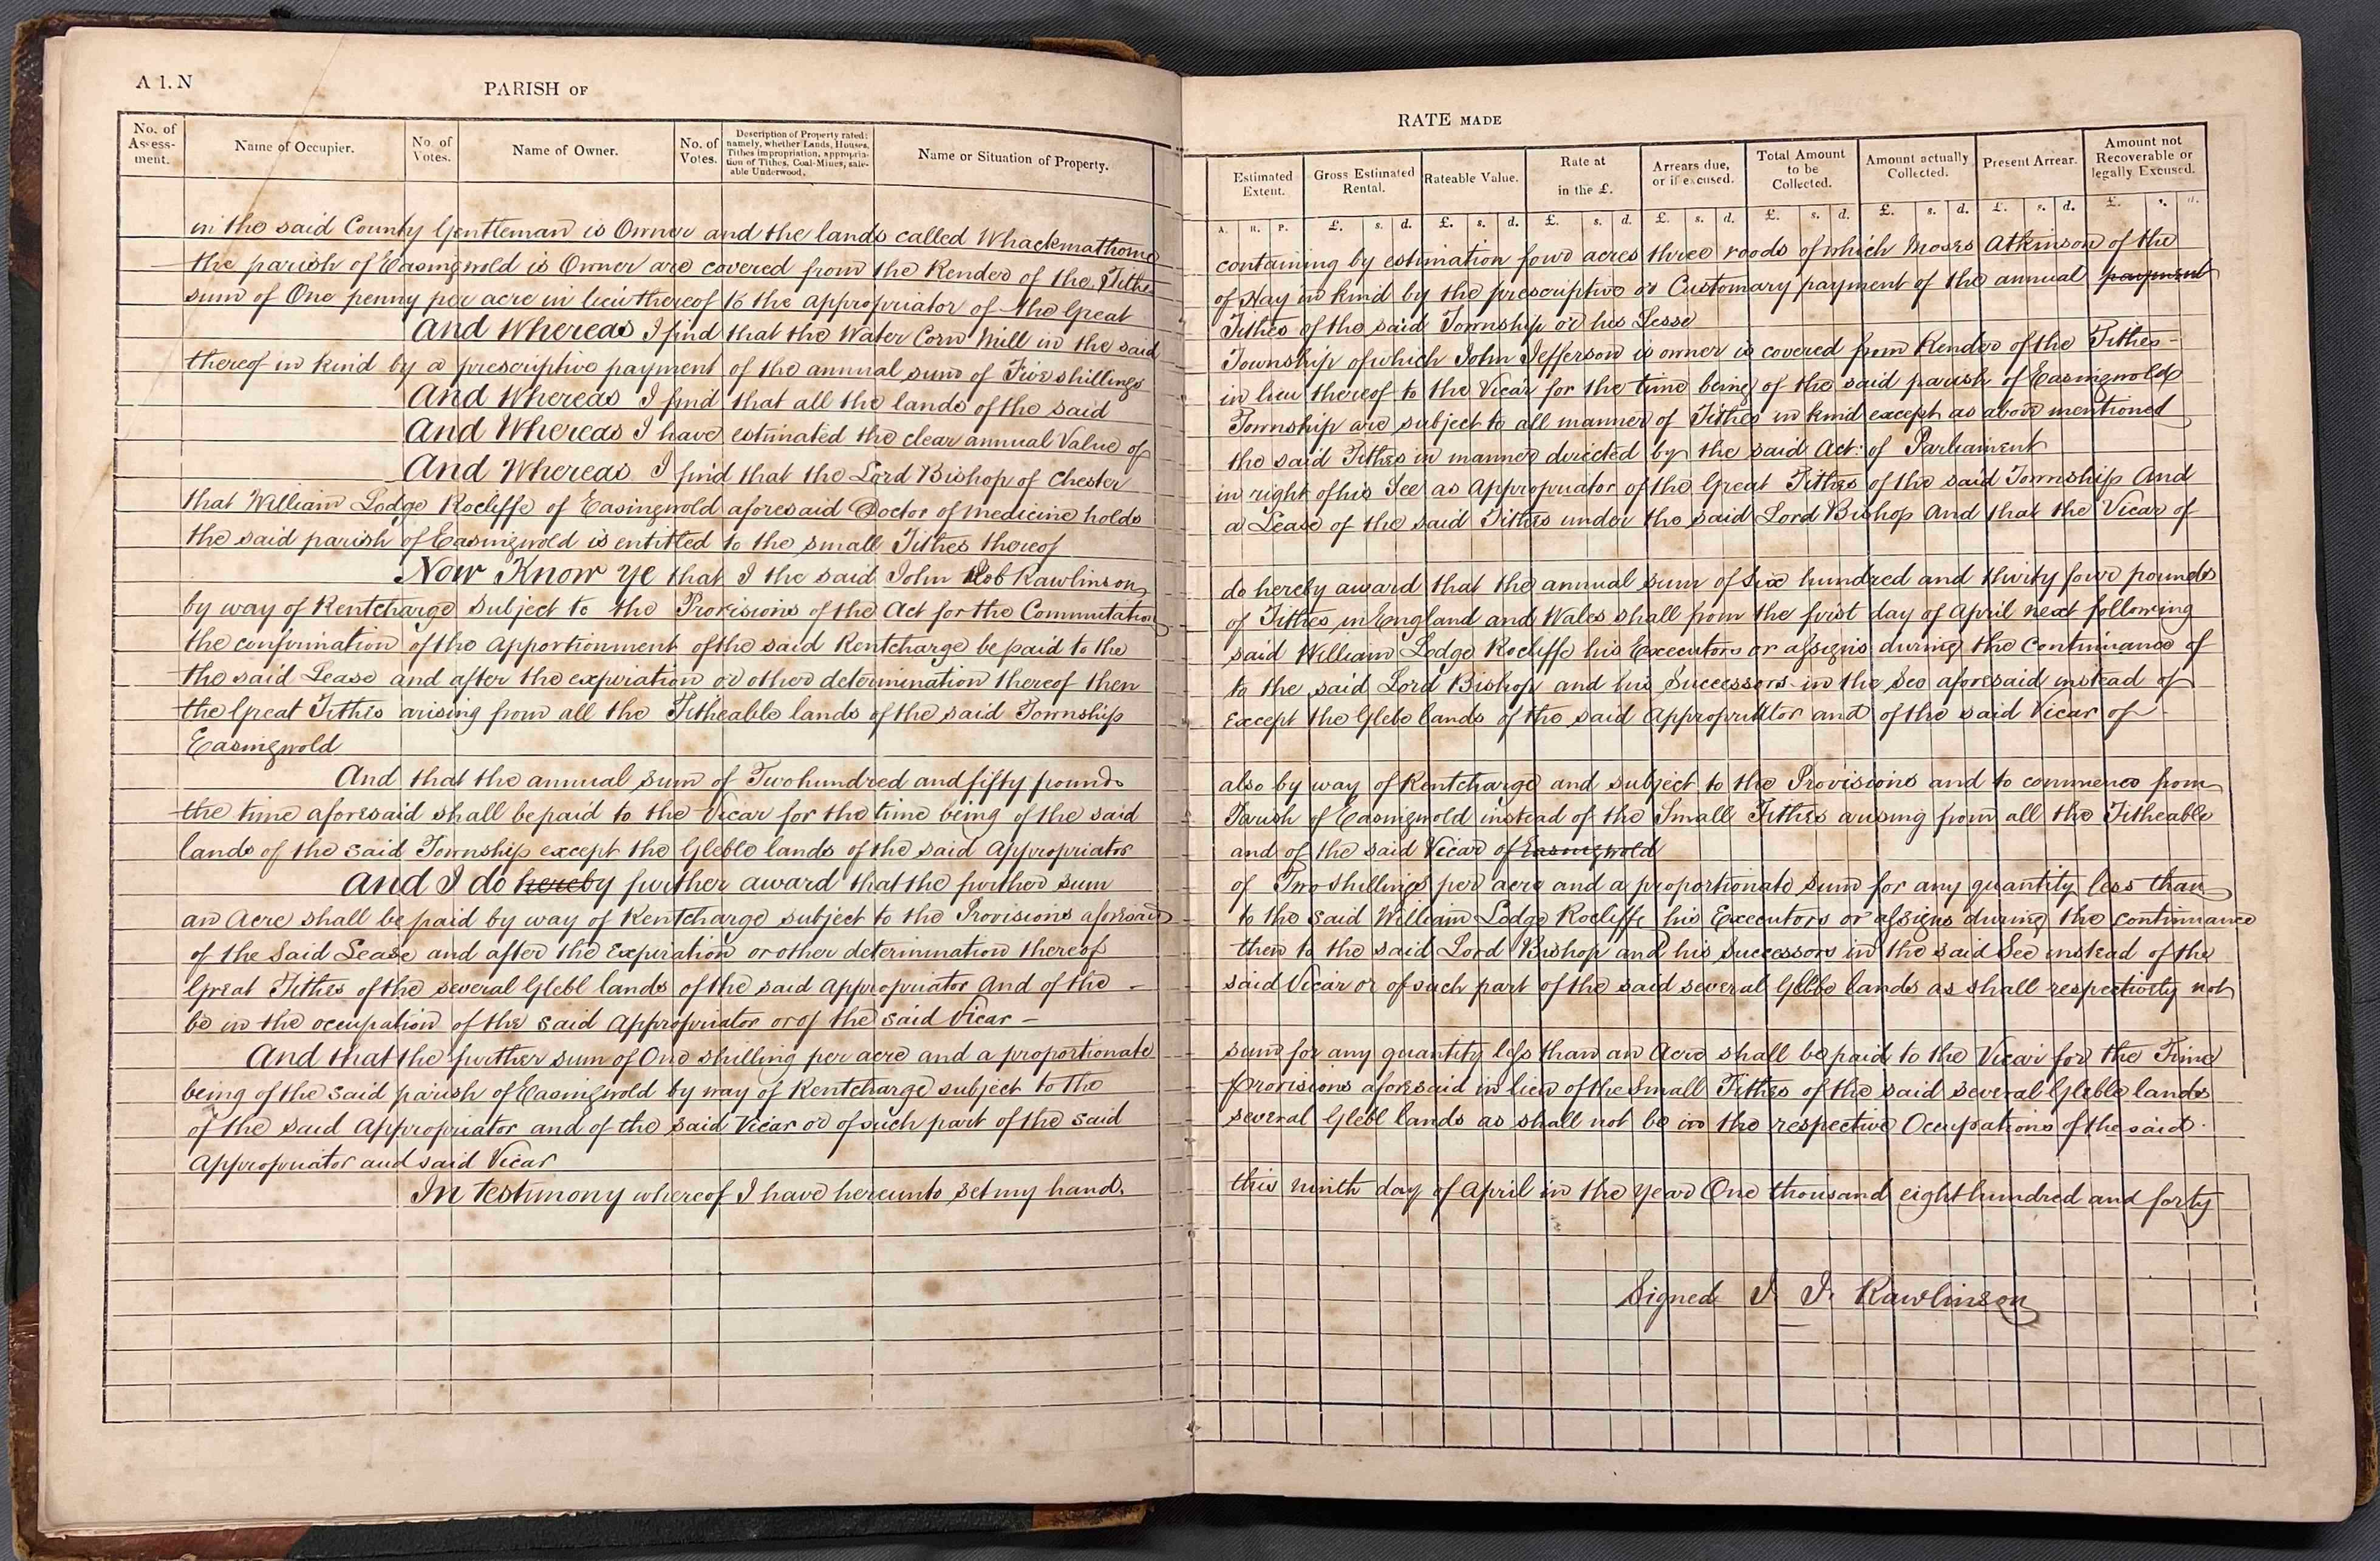 A 1. N
PARISH OF
RATE MADE
No. of Assess-ment.
Name of Occupier.
No. of Votes.
Name of Owner.
No. of Votes.
Description of Property rated; namely, whether Lands, Houses, Tithes impropriation, appropria-tion of Tithes, Coal-Mines, sale-able Underwood.
Name or Situation of Property.
Estimated Extent.
Gross Estimated Rental.
Rateable Value.
Rate at in the £.
Arrears due, or if excused.
Total Amount to be Collected.
Amount actually Collected.
Present Arrear.
Amount not Recoverable or legally Excused.
A. R. P. £. s. d. £. s. d. £. s. d. £. s. d. £. s. d. £. s. d. £. s. d. £. s. d.
in the said County Gentleman is Owner and the lands called Whackmathorne containing by estimation four acres three roods of which Moses Atkinson of the
the parish of Easingwold is Owner are covered from the Render of the Tithes of Hay in kind by the prescriptive or Customary payment of the annual payment
sum of One penny per acre in lieu thereof to the appropriator of the Great Tithes of the said Township or his Lesse
And Whereas I find that the Water Corn Mill in the said Township of which John Jefferson is owner is covered from Render of the Tithes
thereof in kind by a prescriptive payment of the annual sum of Five shillings in lieu thereof to the Vicar for the time being of the said parish of Easingwold
And Whereas I find that all the lands of the said Township are subject to all manner of Tithes in kind except as above mentioned
And Whereas I have estimated the clear annual Value of the said Tithes in manner directed by the said Act of Parliament
And Whereas I find that the Lord Bishop of Chester in right of his See as Appropriator of the Great Tithes of the said Township And
that William Lodge Rocliffe of Easingwold aforesaid Doctor of medicine holds a Lease of the said Tithes under the said Lord Bishop And that the Vicar of
the said parish of Easingwold is entitled to the small Tithes thereof
Now Know Ye that I the said John Job Rawlinson do hereby award that the annual sum of Six hundred and thirty four pounds
by way of Rentcharge subject to the Provisions of the Act for the Commutation of Tithes in England and Wales shall from the first day of April next following
the confirmation of the Apportionment of the said Rentcharge be paid to the said William Lodge Rocliffe his Executors or assigns during the Continuance of
the said Lease and after the expiration or other determination thereof then to the said Lord Bishop and his Successors in the See aforesaid instead of
the Great Tithes arising from all the Titheable lands of the said Township Except the Glebe lands of the said Appropriator and of the said Vicar of
Easingwold
And that the annual sum of Two hundred and fifty pounds also by way of Rentcharge and subject to the Provisions and to commence from
the time aforesaid shall be paid to the Vicar for the time being of the said Parish of Easingwold instead of the Small Tithes arising from all the Titheable
lands of the said Township except the Gleble lands of the said Appropriator and of the said Vicar of Easingwold
And I do hereby further award that the further sum of Two shillings per acre and a proportionate sum for any quantity less than
an Acre shall be paid by way of Rentcharge subject to the Provisions aforesaid to the said William Lodge Rocliffe his Executors or assigns during the continuance
of the Said Lease and after the Expiration or other determination thereof then to the said Lord Bishop and his Successors in the said See instead of the
Great Tithes of the several Glebl lands of the said Appropriator And of the said Vicar or of such part of the said several Glebe lands as shall respectivity not
be in the occupation of the said Appropriator or of the said Vicar
And that the further sum of One shilling per acre and a proportionate sum for any quantity less than an Acre shall be paid to the Vicar for the Time
being of the said parish of Easingwold by way of Rentcharge subject to the provisions aforesaid in lieu of the Small Tithes of the said several Gleble lands
of the said Appropriator and of the said Vicar or of such part of the said several Glebl lands as shall not be in the respective Occupations of the said
Appropriator and said Vicar
In testimony whereof I have hereunto set my hand. this ninth day of April in the Year One thousand eight hundred and forty
Signed J. J. Rawlinson